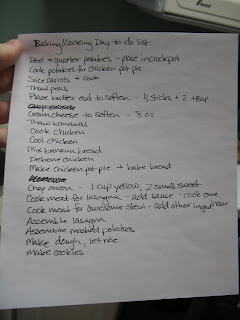 Baking/Cooking Day to do list:
Peel & quarter potatoes - place in crockpot
Cook potatoes for chicken pot pie
Slice carrots & cook
Thaw peas
Place butter out to soften - 4 sticks + 2 tbsp
Cream cheese to soften - 8 oz
Thaw bananas
Cook chicken
Cool chicken
Mix banana bread
Debone chicken
Make chicken pot pie + bake bread
Chop onion - 1 cup yellow, 2 small sweet
Cook meat for lasagna - add sauce - cook one
Cook meat for awesome stew - add other ingred
Assemble lasagna
Assemble mashed potatoes
Make dough, let rise
Make cookies